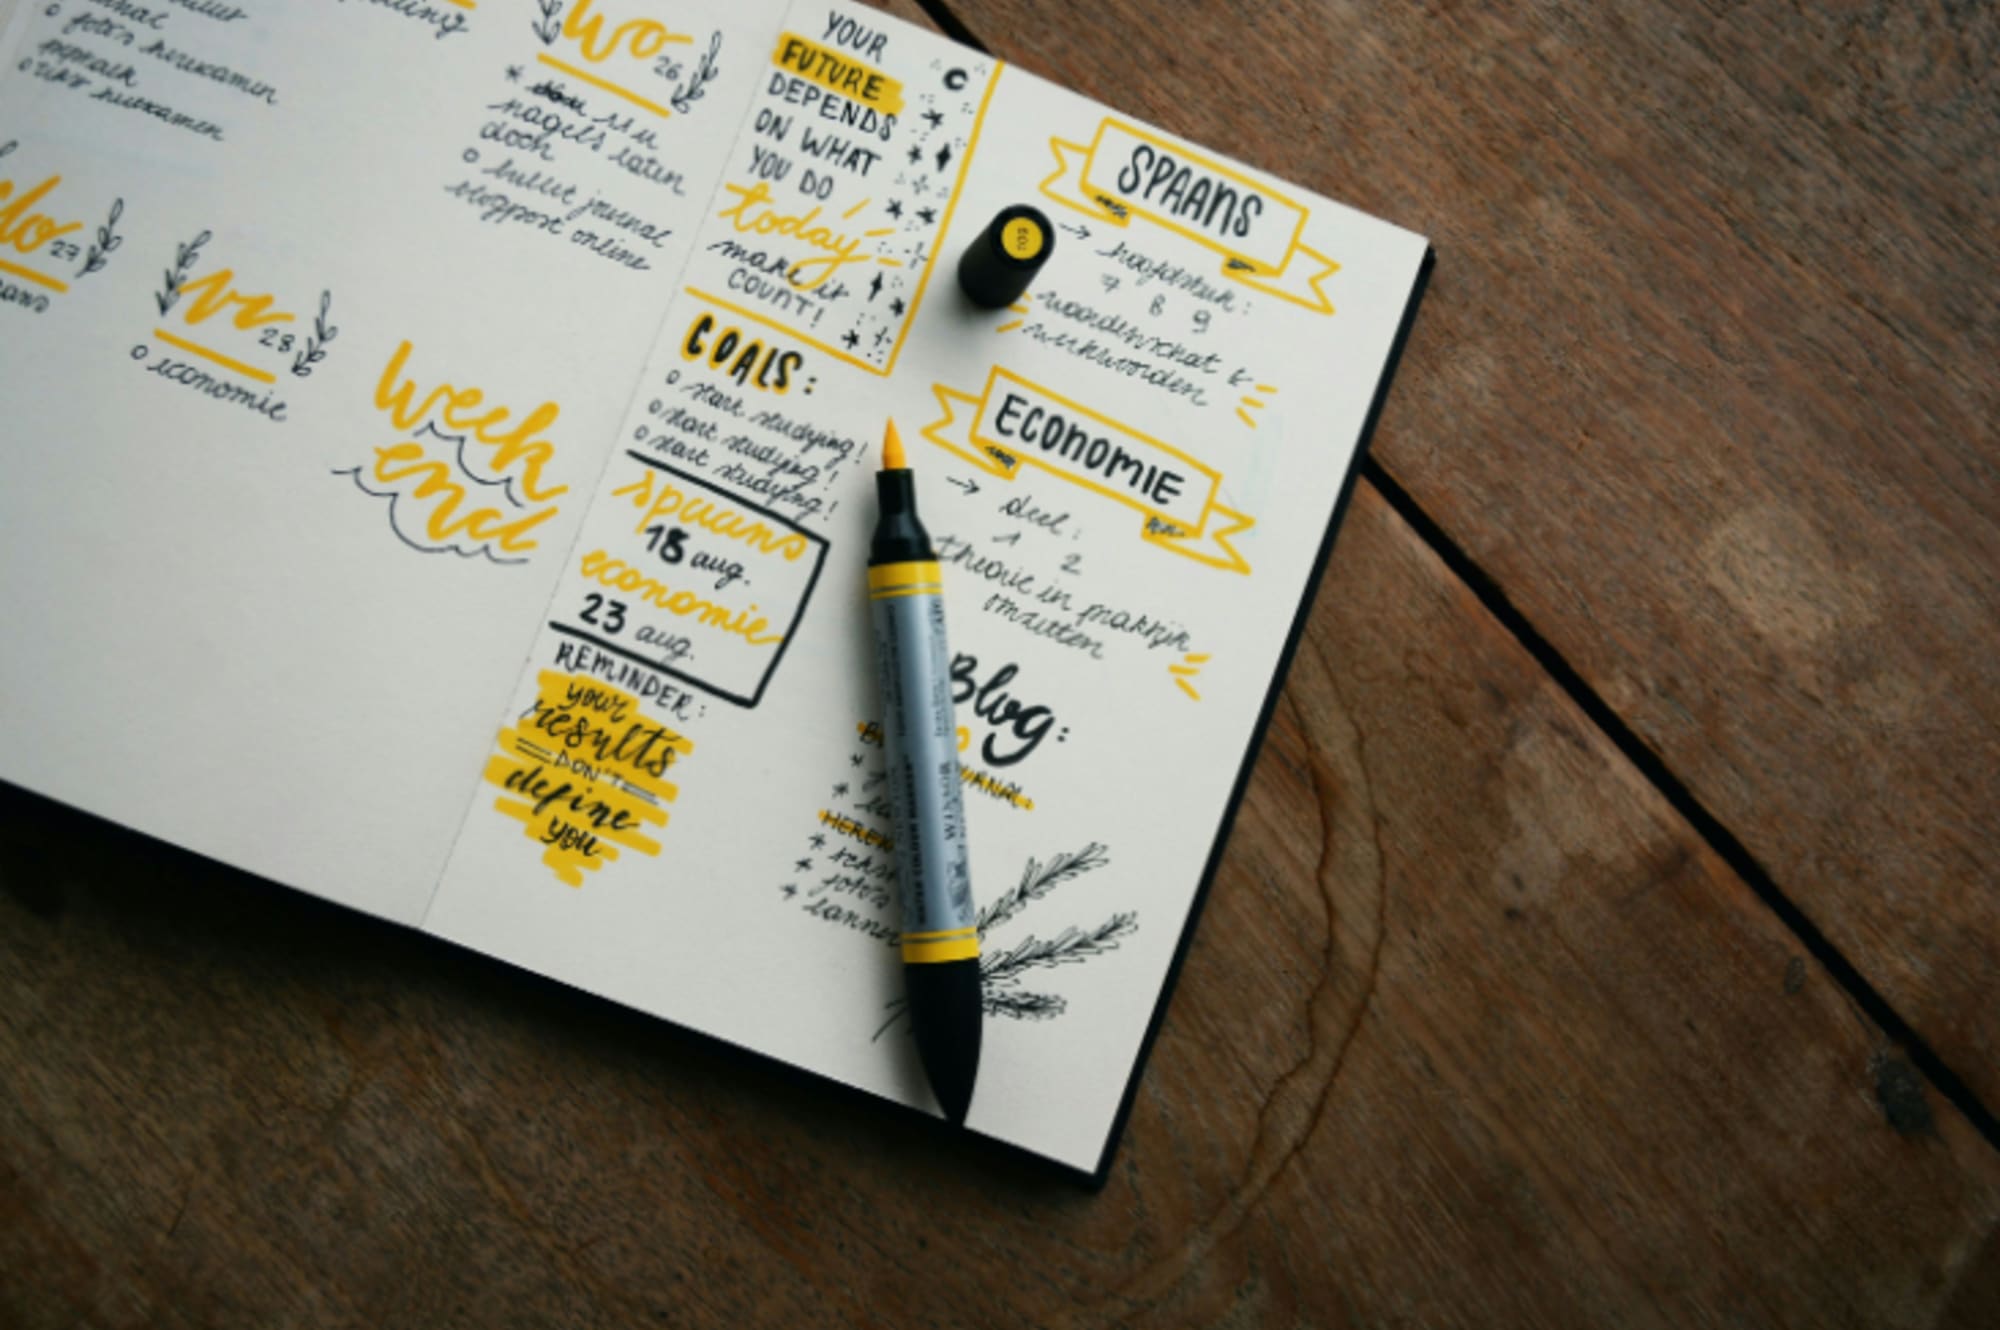 bullet
o foto's herexamen
o herexamen
wo 26
* 11 u
nagels laten
doch
o bullet journal
blogpost online
do 27
vr 28
o economie
week
end
YOUR
FUTURE
DEPENDS
ON WHAT
YOU DO
today
make it
COUNT!
GOALS:
o start studying!
o start studying!
o start studying!
spaans
18 aug.
economie
23 aug.
REMINDER:
your
results
DON'T
define
you
SPAANS
→ hoofdstuk:
7 8 9
woordenschat &
werkwoorden
ECONOMIE
→ deel:
1 2
theorie in praktijk
omzetten
Blog:
* tekst
* foto's
109
WINSOR